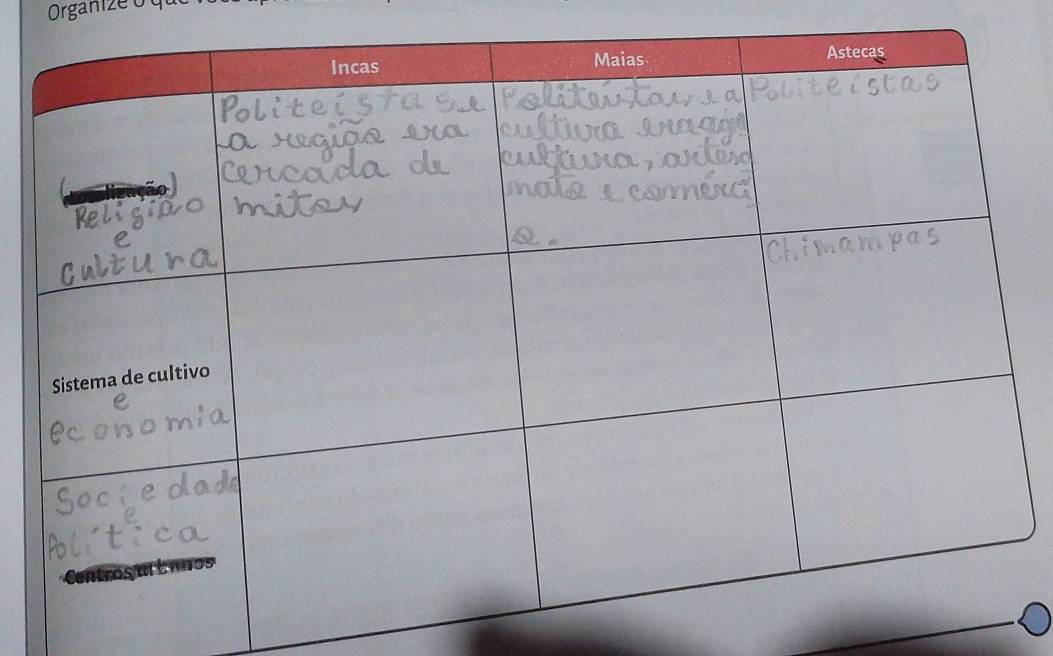 Organize o que
Incas Maias Astecas
(Localização)
Religião
e
cultura
Politeístas e
a região era
cercada de
mitos
Politeístas, e a
cultura era ag
cultura, artesa
nato e comérci
o.
Politeistas
Sistema de cultivo
e
economia
Chimampas
Sociedade
e
Política
Centros urbanos